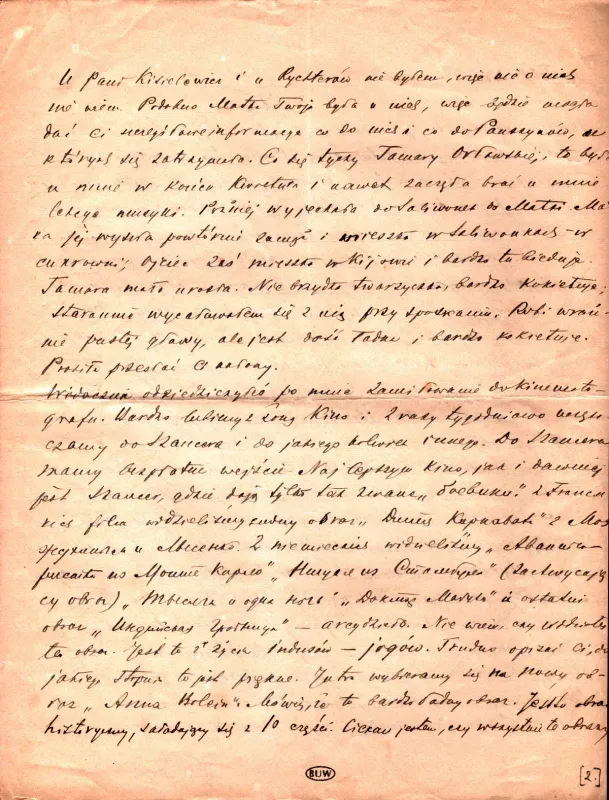 U Pani Kisielowicz i u Rychterów nie byłem, więc nic o nich
nie wiem. Podobno Matka Twoja była u nich, więc będzie mogła
dać Ci szczegółowe informacje co do nich i co do
których się zatrzymała. Co się tyczy Tamary Orłowskiej, to była
u mnie w końcu Kwietnia i nawet zaczęła brać u mnie
lekcye muzyki. Później wyjechała do Saliwonek do Matki. Mat-
ka jej wyszła powtórnie zamąż i mieszka w Saliwonkach w
cukrowni; Ojciec zaś mieszka w Kijowie i bardzo tu bieduje.
Tamara mało urosła. Nie brzydka twarzyczka, bardzo kokietuje;
starannie wycałowałem się z nią przy spotkaniu. Robi wraże-
nie pustej głowy, ale jest dość ładna i bardzo kokietuje.
Prosiła przesłać Ci ukłony.
Widocznie odziedziczyłeś po mnie zamiłowanie do kinemato-
grafu. Bardzo lubimy z żoną Kino i 2 razy tygodniowo uczęsz-
czamy do Szancera i do jakiego innego. Do Szancera
mamy bezpłatne wejście. Najlepszym kino, jak i dawniej
jest Szancer, gdzie dają tylko tak zwane „боевики". Z Francu-
skich film widzieliśmy cudny obraz „ Карнавал" z Moz-
жухиным и Лисенко. Z niemieckich widzieliśmy „Авантю-
ристка из Монте Карло", „Нищая из Стамбула" (zachwycają-
cy obraz) „Тысяча и одна ночь" „Доктор Мабузо" i ostatni
obraz „Индийская Гробница" – arcydzieło. Nie wiem, czy widziałeś
ten obraz. Jest to z życia indusów – jogów. Trudno opisać Ci, do
jakiego stopnia to jest piękne. Jutro wybieramy się na nowy ob-
raz „Anna Bolein". Mówią, że to bardzo ładny obraz. Jest to obraz
historyczny, składający się z 10 części. Ciekaw jestem, czy wszystkie te obrazy
BUW
[2.]